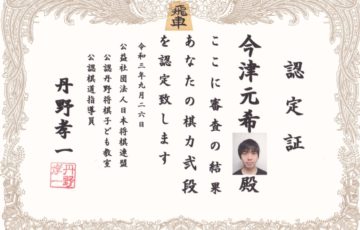 飛車
認定証
今津元希殿
ここに審査の結果
あなたの棋力弐段
を認定致します
令和三年九月二六日
公益社団法人日本将棋連盟
公認丹野将棋子ども教室
公認棋道指導員
丹野孝一
丹野
孝一